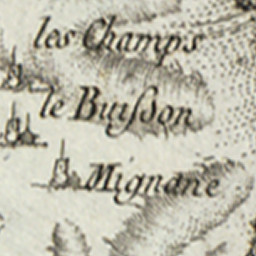 les Champs
le Buiſson
Mignane